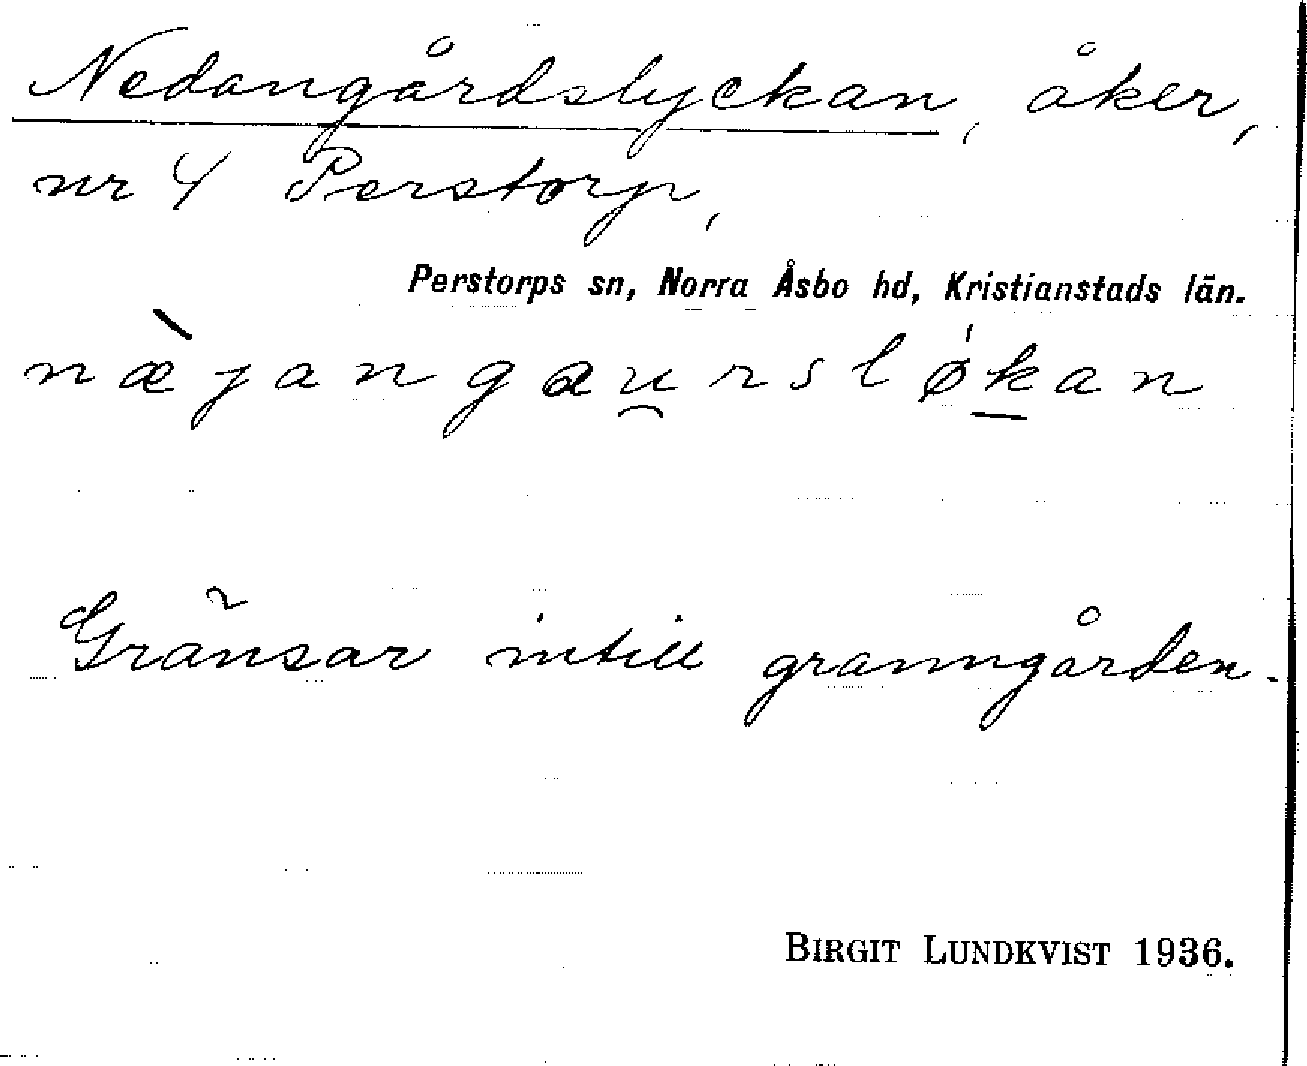 Nedangårdslyckan, åker,
nr 4 Perstorp,
Perstorps sn, Norra Åsbo hd, Kristianstads län.
næ̀jangau̯rsløḱ̲an
Gränsar intill granngården.
BIRGIT LUNDKVIST 1936.